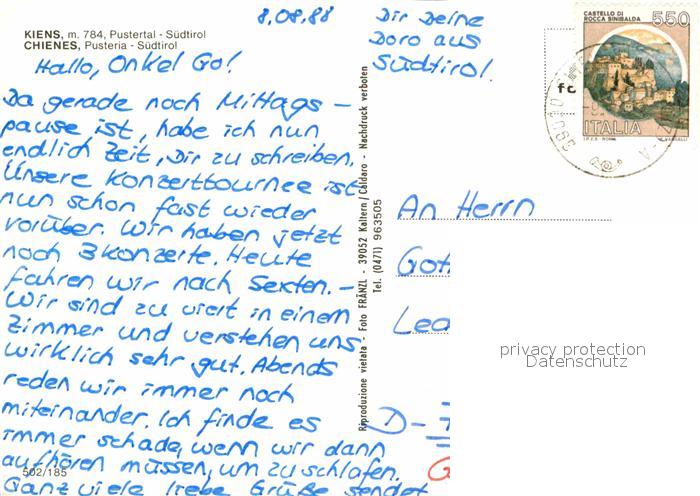 8.08.88
KIENS, m. 784, Pustertal - Südtirol
CHIENES, Pusteria - Südtirol
Hallo, Onkel Go!
Da gerade noch Mittags-
pause ist, habe ich nun
endlich Zeit, Dir zu schreiben.
Unsere Konzerttournee ist
nun schon fast wieder
vorüber. Wir haben jetzt
noch 3 Konzerte. Heute
fahren wir nach Sexten. -
Wir sind zu viert in einem
Zimmer und verstehen uns
wirklich sehr gut. Abends
reden wir immer noch
miteinander. Ich finde es
immer schade, wenn wir dann
aufhören müssen, um zu schlafen.
502/185
Ganz viele liebe Grüße sendet
Dir Deine
Doro aus
Südtirol.
Riproduzione vietata - Foto FRÄNZL - 39052 Kaltern/Caldaro - Nachdruck verboten
Tel. (0471) 963505
CASTELLO DI
ROCCA SINIBALDA
550
ITALIA
I.P.Z.S. - ROMA
An Herrn
Got
Leo
D-
privacy protection
Datenschutz